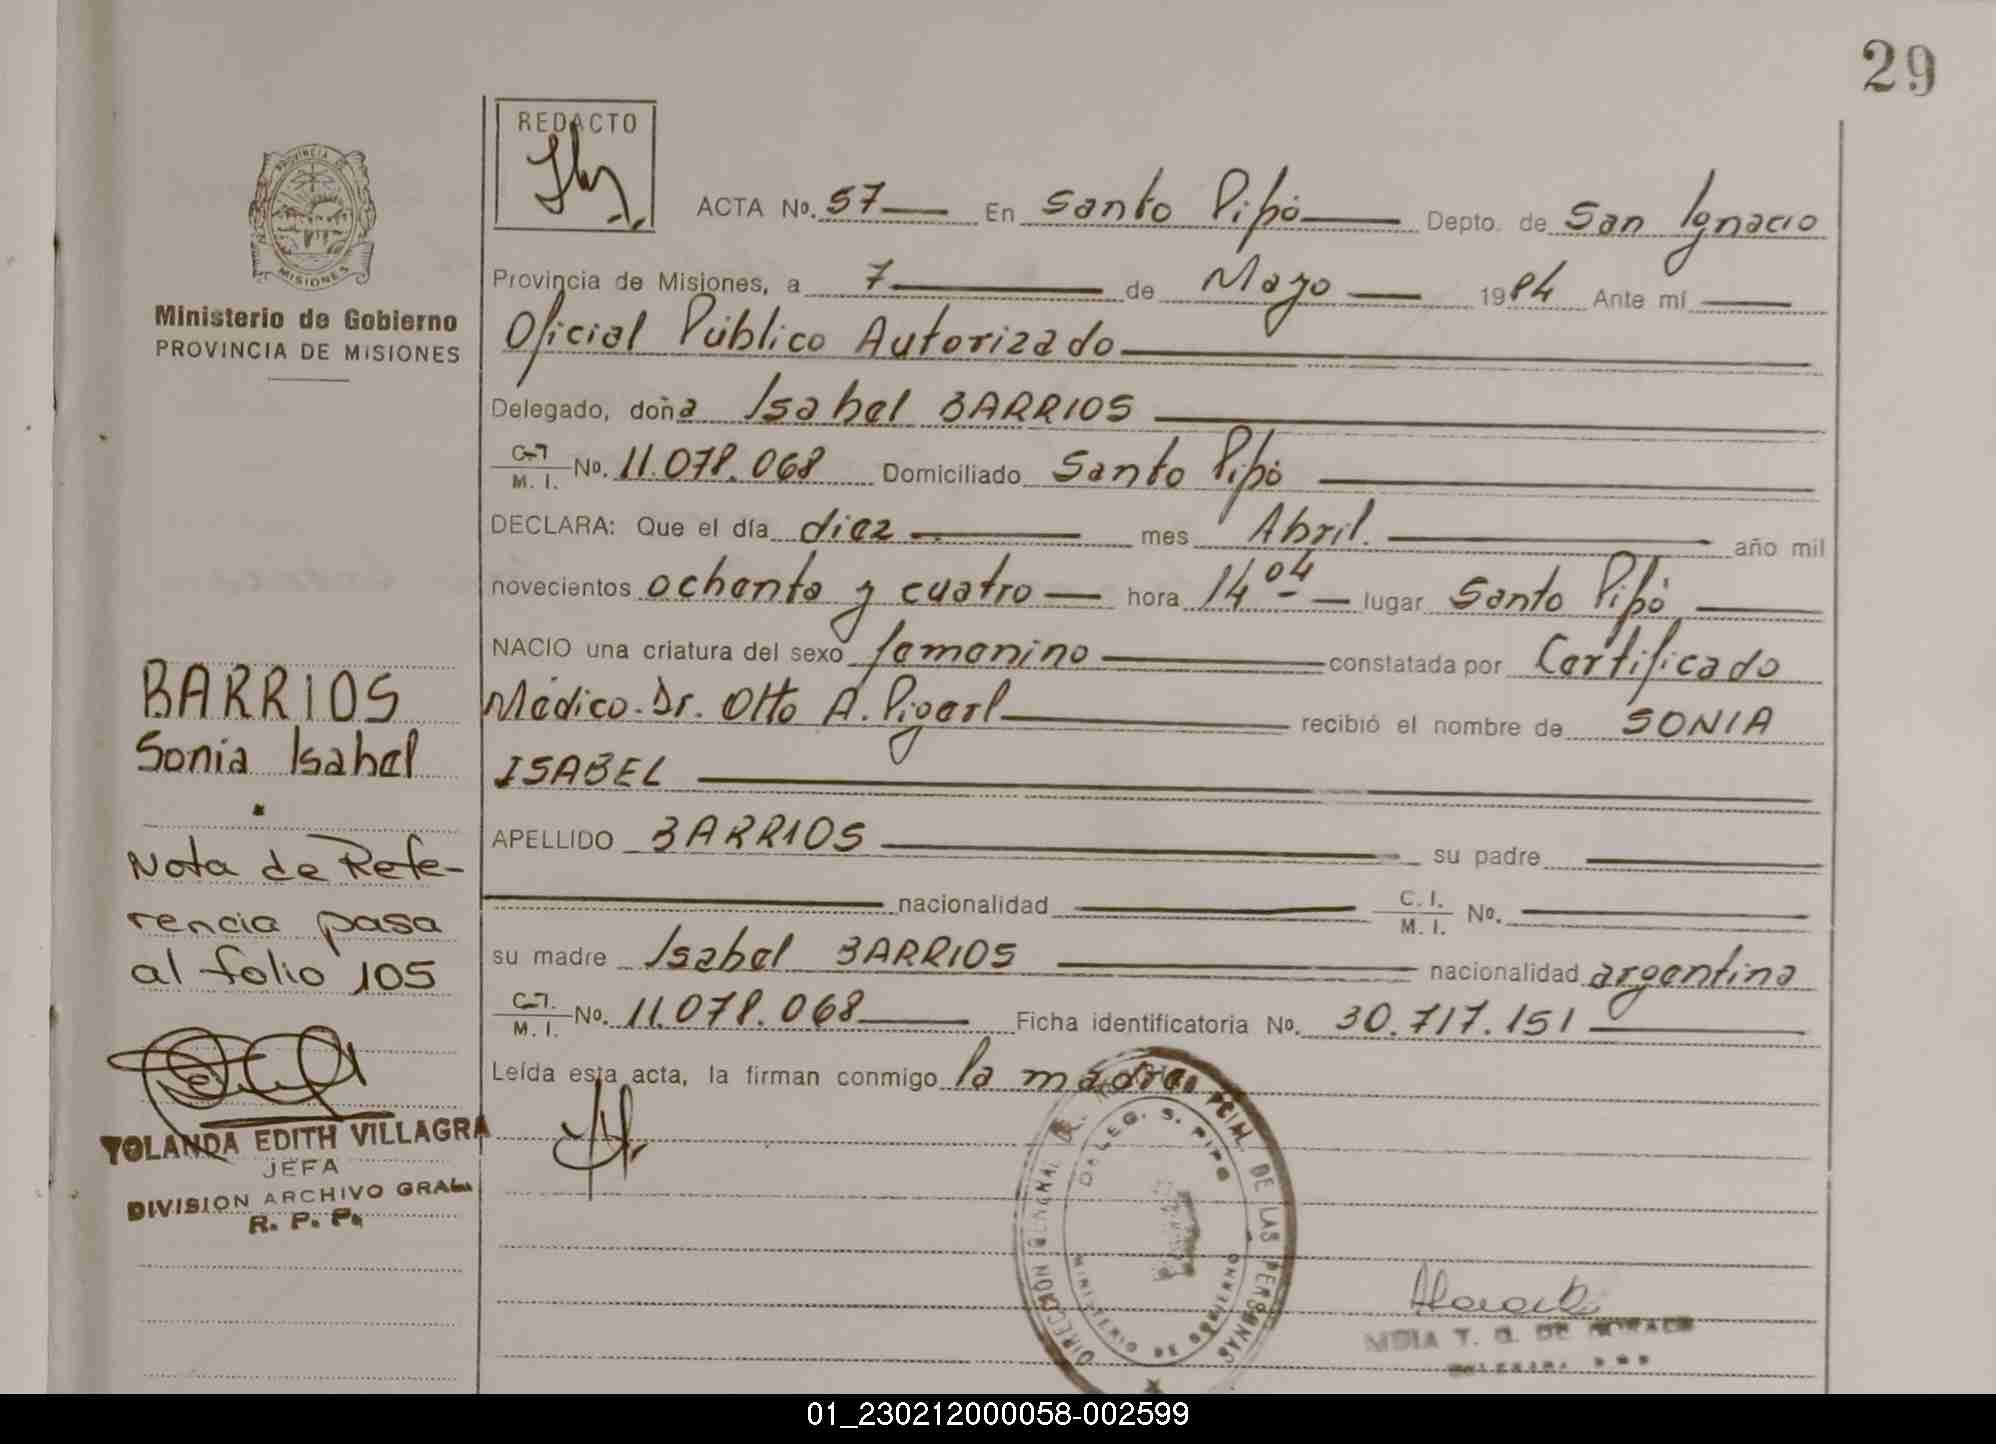 29
REDACTO
ACTA No. 57 En Santo Pipó Depto. de San Ignacio
Provincia de Misiones, a 7 de Mayo 1984 Ante mí
Oficial Público Autorizado
Delegado, doña Isabel BARRIOS
C.I. M. I. No. 11.078.068 Domiciliado Santo Pipó
DECLARA: Que el día diez mes Abril. año mil
novecientos ochenta y cuatro hora 14 04 lugar Santo Pipó
NACIO una criatura del sexo femenino constatada por Certificado
Médico. Dr. Otto A. recibió el nombre de SONIA
ISABEL
APELLIDO BARRIOS su padre
nacionalidad C. I. M. I. No.
su madre Isabel BARRIOS nacionalidad argentina
C.I. M. I. No. 11.078.068 Ficha identificatoria No. 30.717.151
Leída esta acta, la firman conmigo la madre
PROVINCIA DE
MISIONES
Ministerio de Gobierno
PROVINCIA DE MISIONES
BARRIOS
Sonia Isabel
Nota de Refe-
rencia pasa
al folio 105
YOLANDA EDITH VILLAGRA
JEFA
DIVISION ARCHIVO GRAL.
R. P. P.
DIRECCION GENERAL PCIAL. DE LAS PERSONAS
DELEG. S. PIPO
MINISTERIO DE GOBIERNO
T. G. DE
01_230212000058-002599